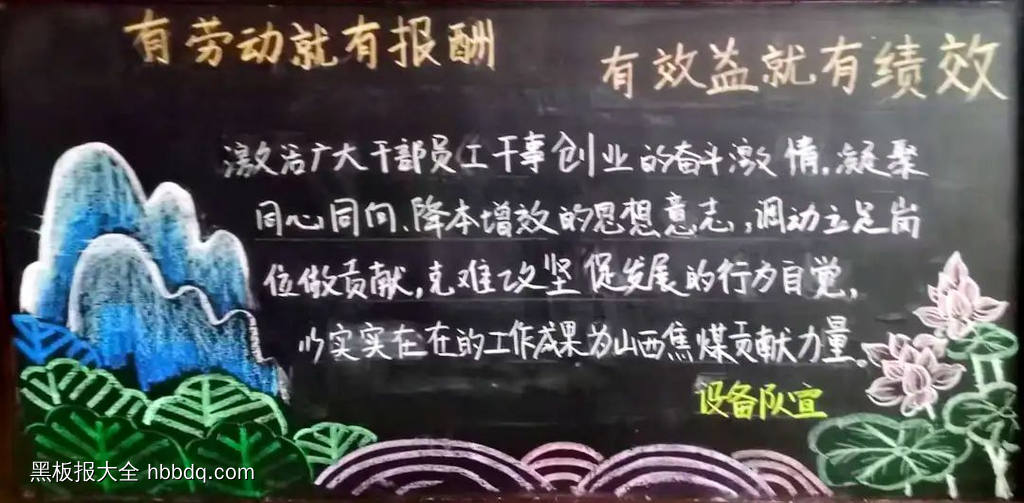 有劳动就有报酬
有效益就有绩效
激活广大干部员工干事创业的奋斗激情,凝聚
同心同向、降本增效的思想意志,调动立足岗
位做贡献,克难攻坚促发展的行为自觉,
以实实在在的工作成果为山西焦煤贡献力量。
设备队宣
黑板报大全 hbbdq.com